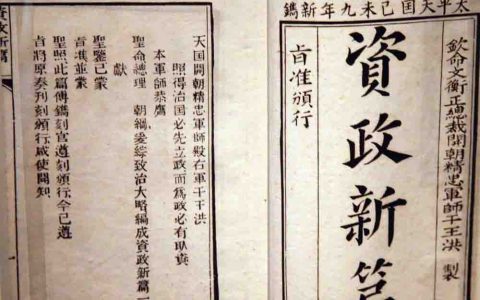 太平天囯己未九年新鐫
欽命文衡正總裁開朝精忠軍師干王洪 製
資政新篇
旨准頒行
天囯開朝精忠軍師殿右軍干王洪
照得治囯必先立政而為政必有取資
本軍師恭膺
聖命總理 朝綱爰綜致治大略編成資政新篇一
獻
聖鑒已蒙
旨准並蒙
聖照此篇傳鐫刻官遵刻頒行今已遵
旨將原奏刊刻頒行咸使聞知
資政新篇